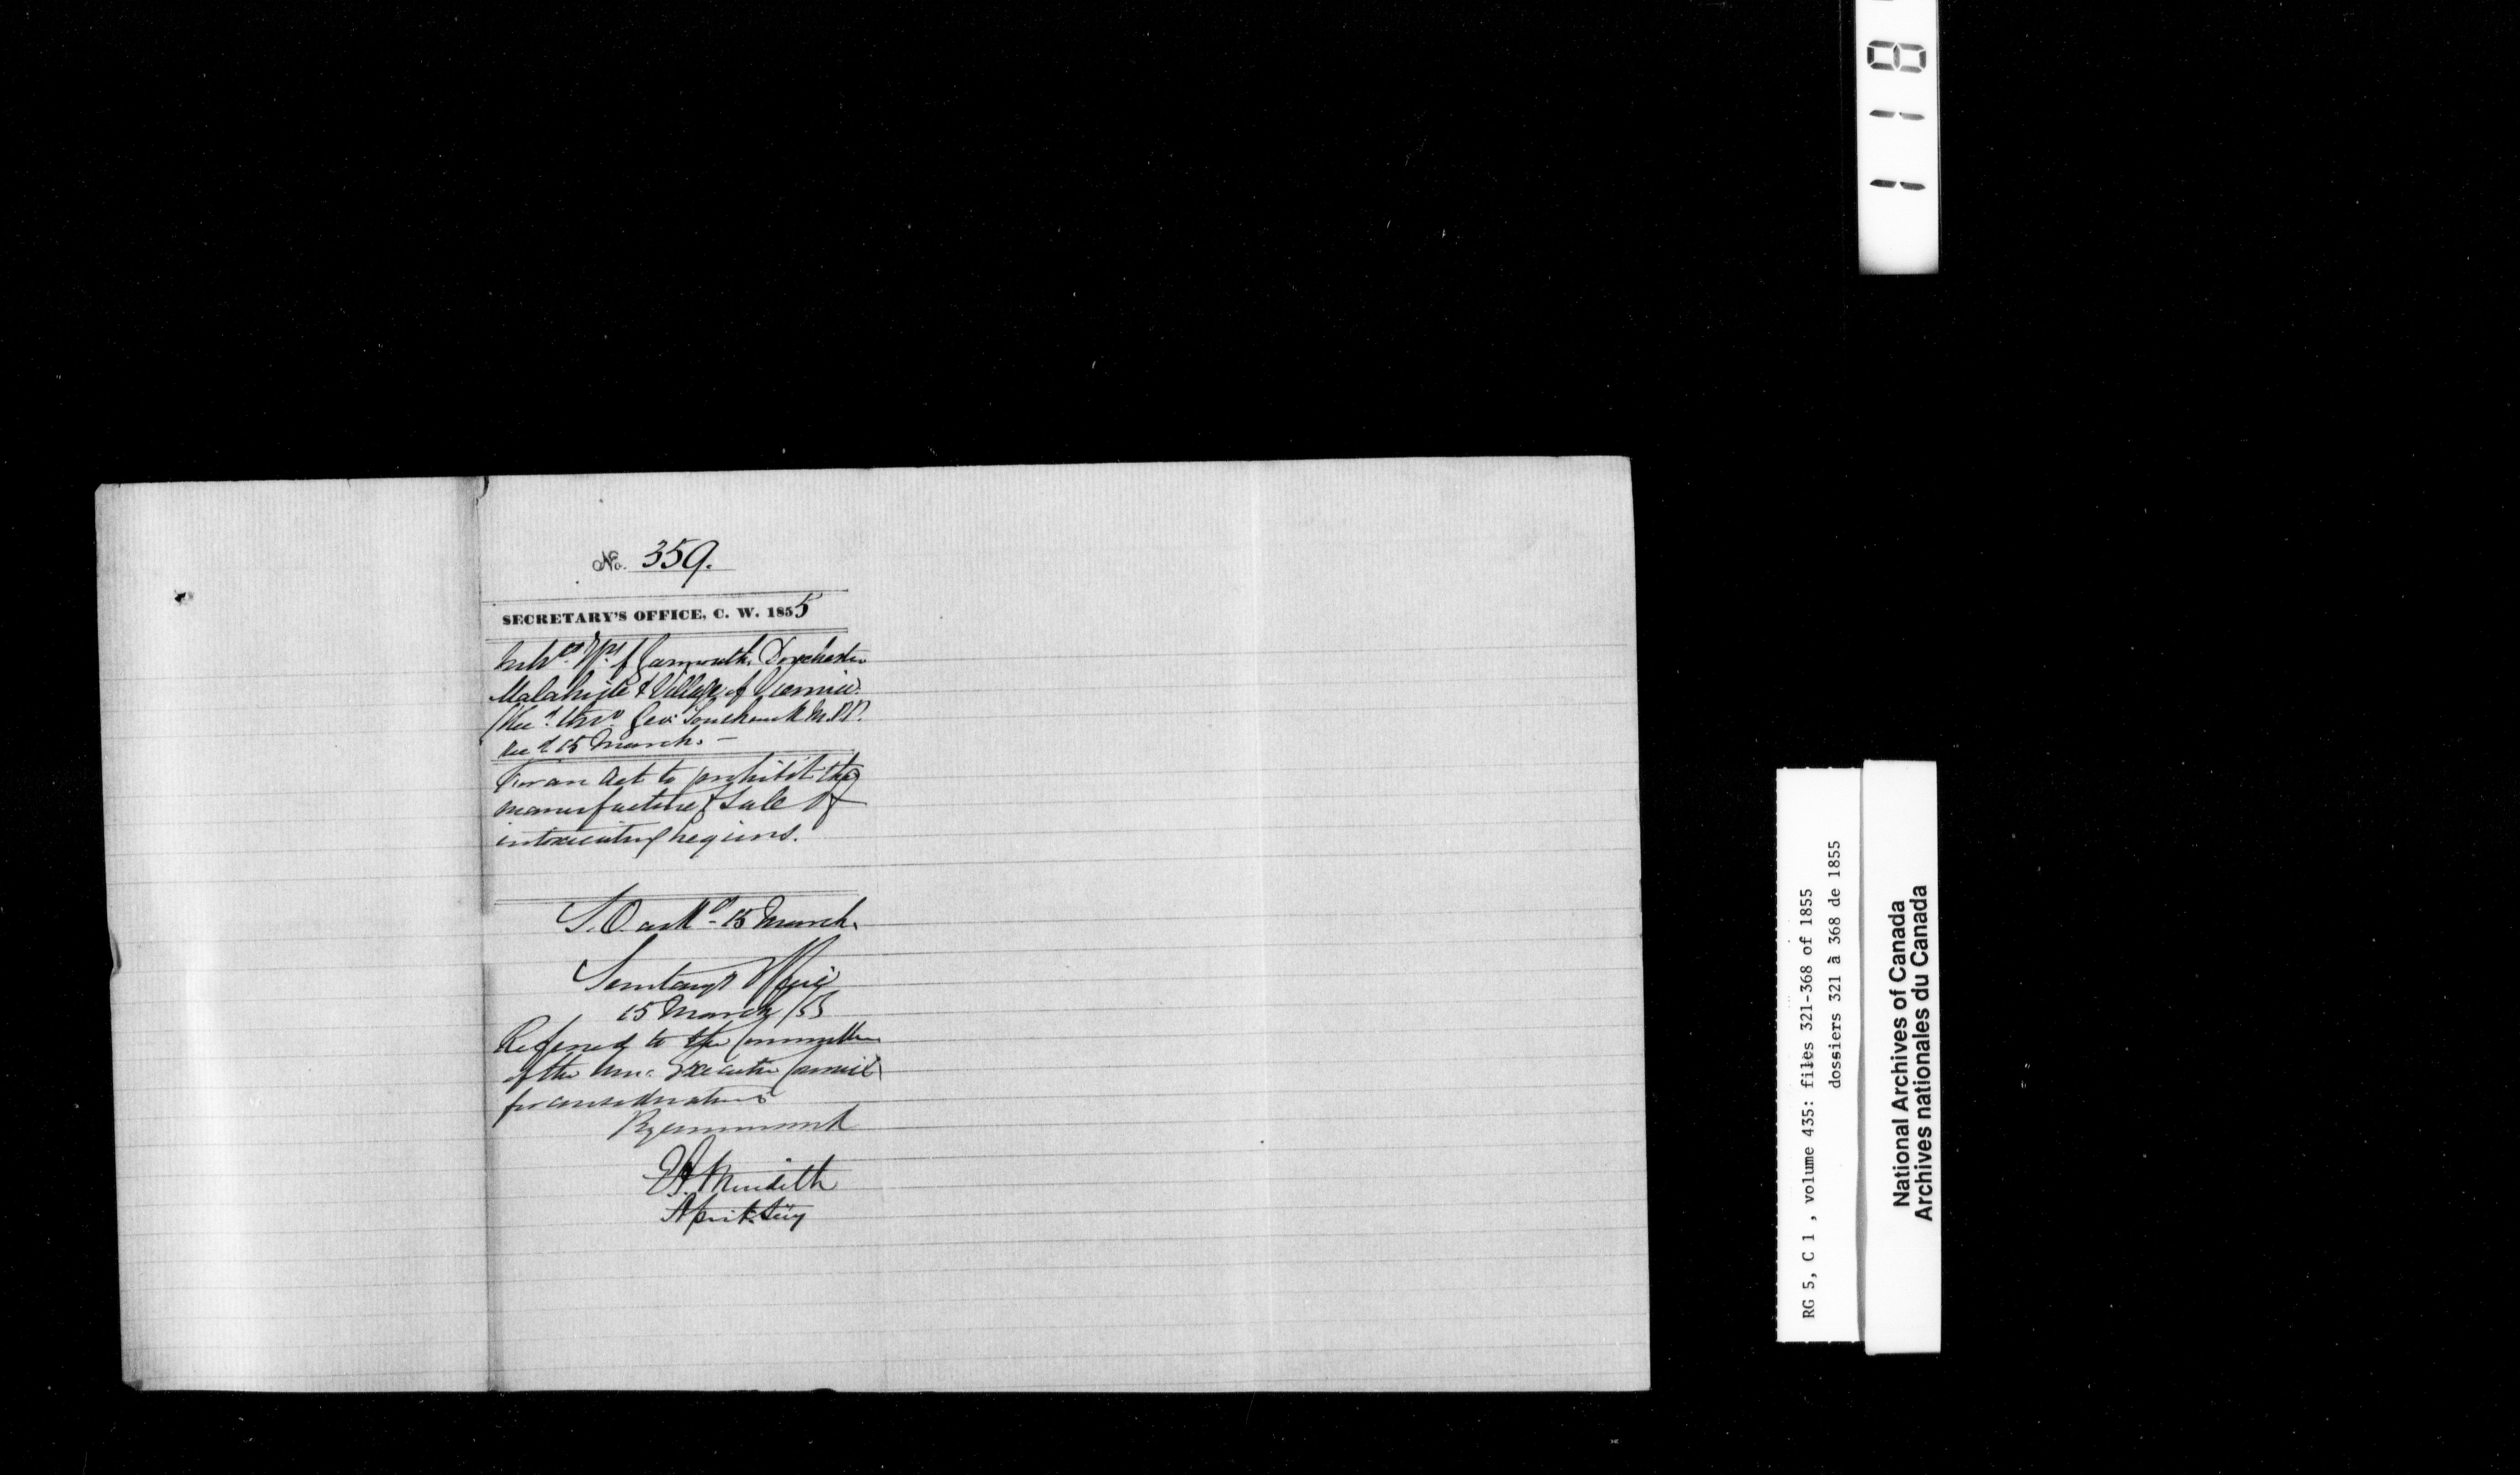 No. 359.
SECRETARY'S OFFICE, C. W. 1855
Inhts Tps of Yarmouth, Dorchester
Malahide & Village of Vienna.
(Recd. thro' Geo: Southwick M.P.P.
Recd 15 March. —
For an Act to prohibit the
manufacture & sale of
intoxicating liquors.
S.O. ackd - 15 March.
Secretary's Office
15 March /55
Referred to the Committee
of the Hon. Executive Council
for consideration
By command
E A. Meredith
Asst. Secy
118
RG 5, C 1 , volume 435: files 321-368 of 1855
dossiers 321 à 368 de 1855
National Archives of Canada
Archives nationales du Canada